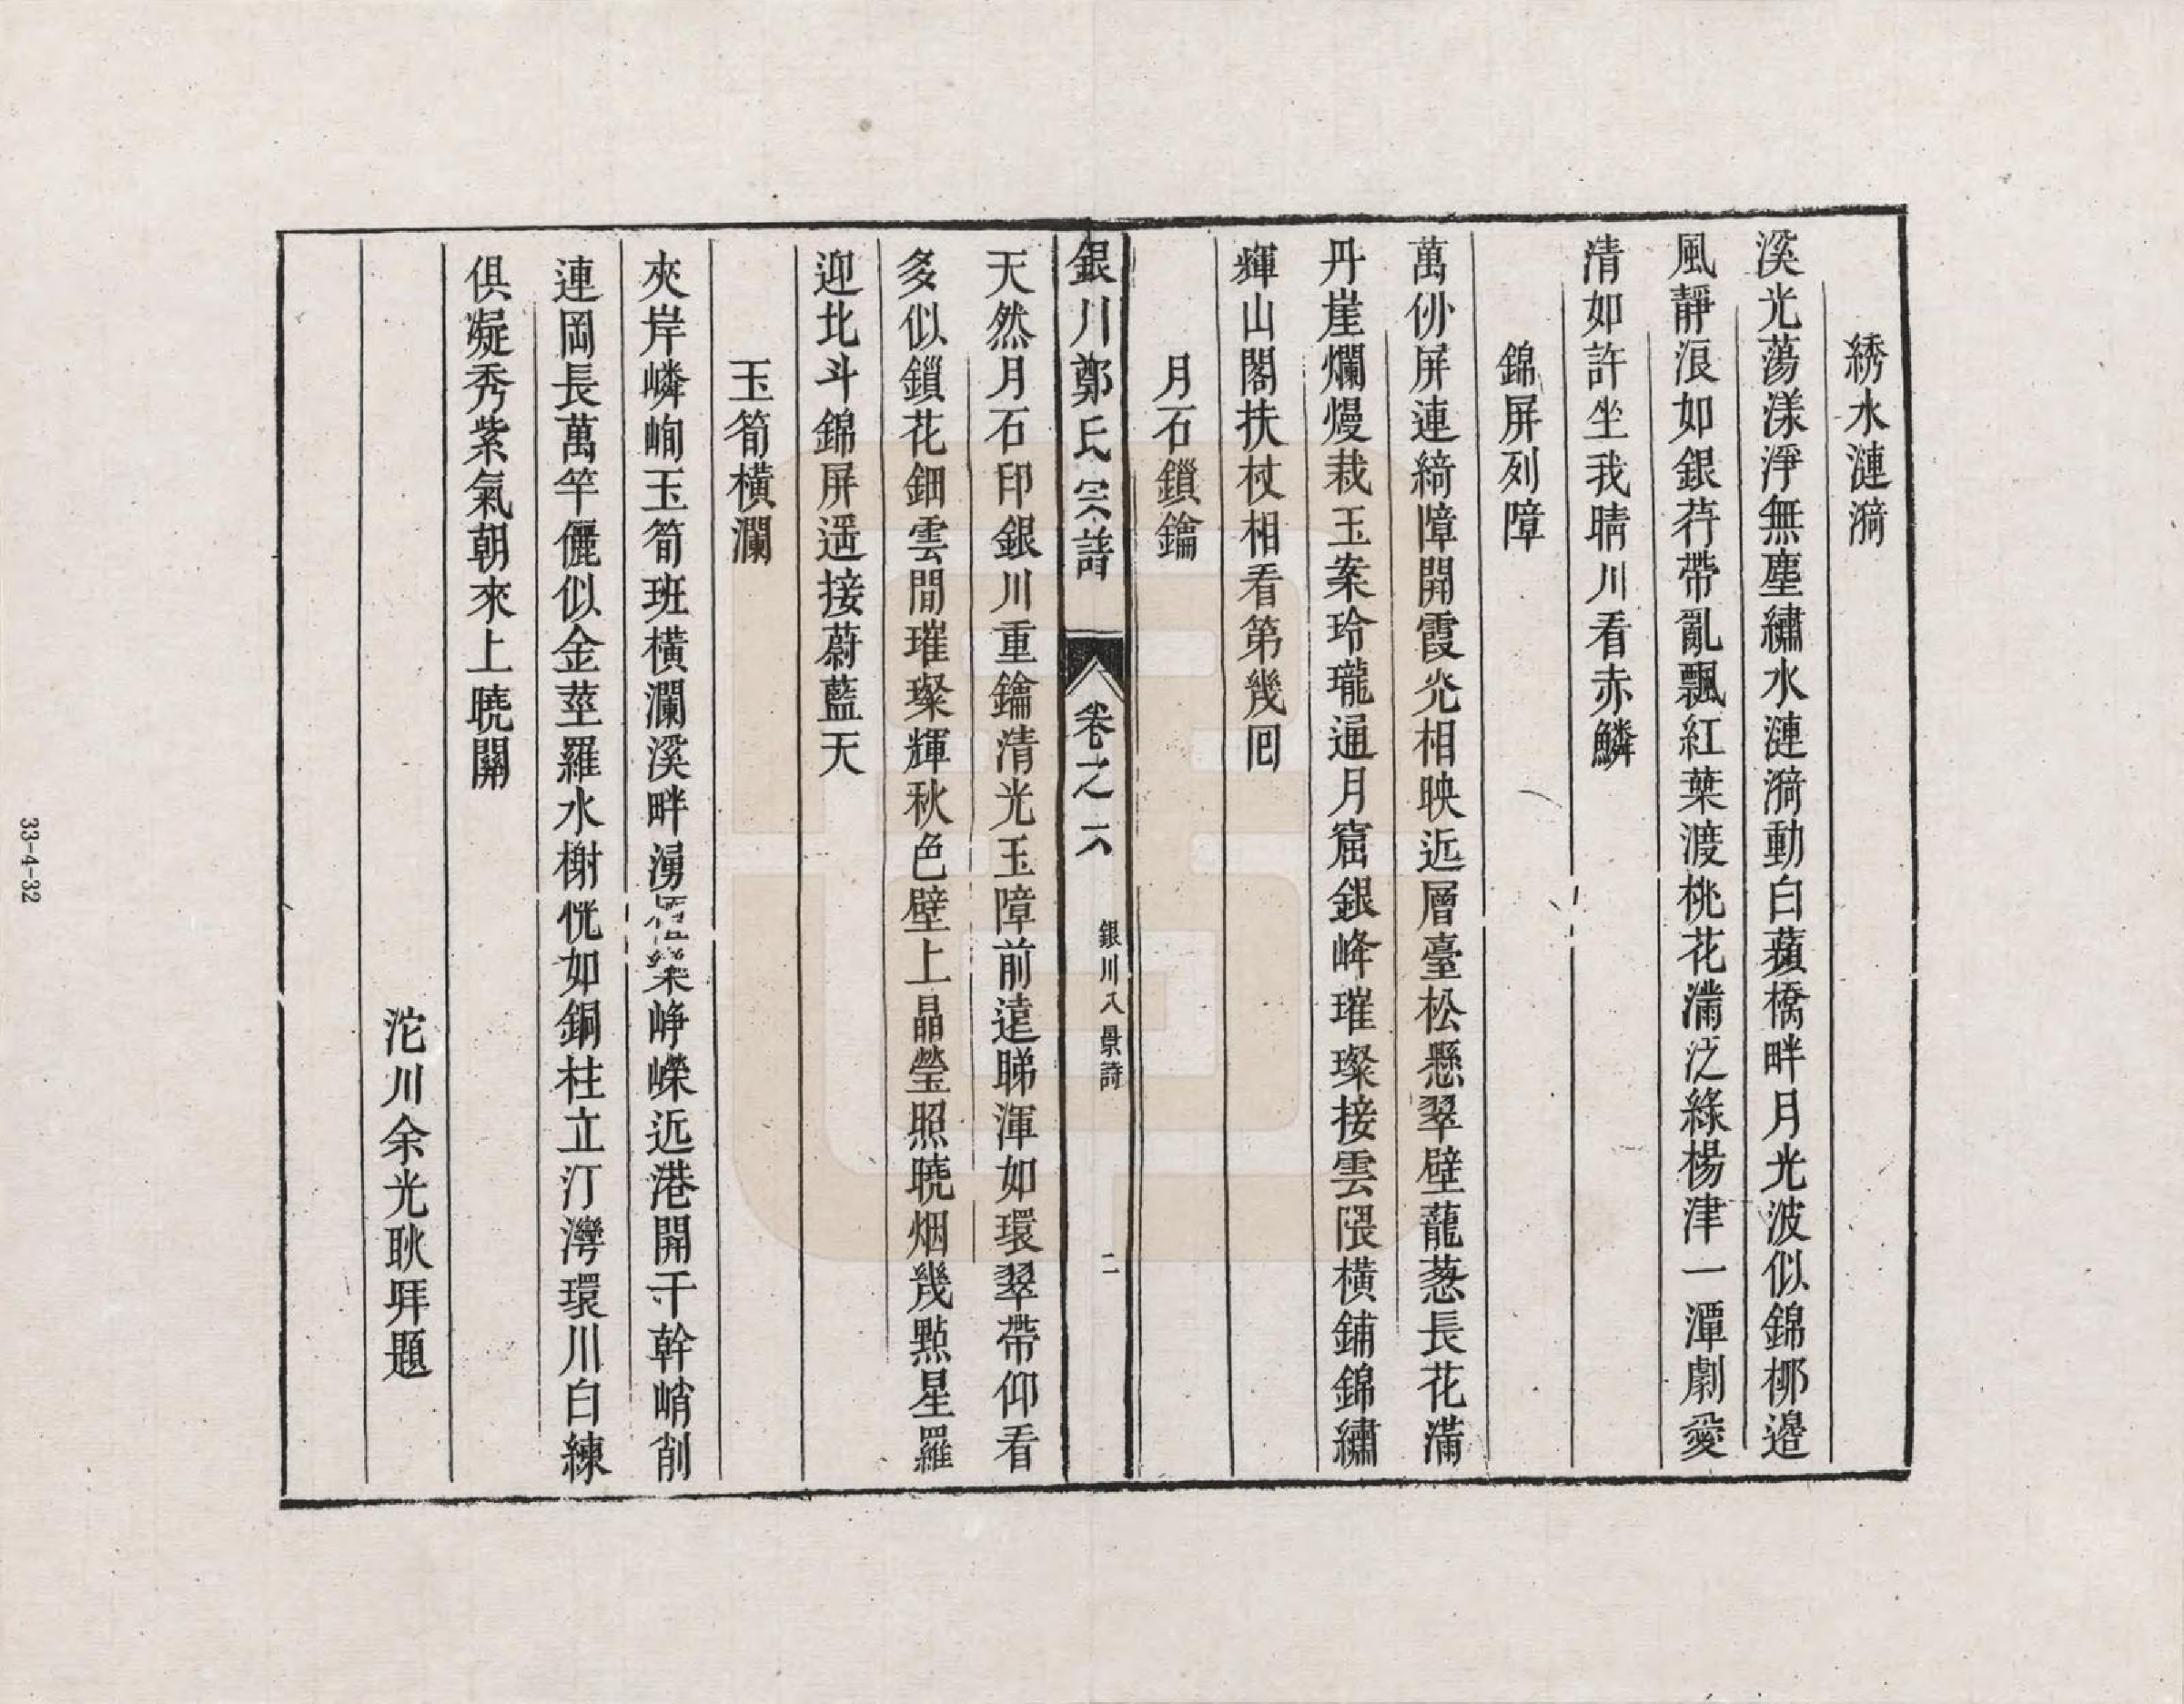 綉水漣漪
溪光蕩漾淨無塵繡水漣漪動白蘋橋畔月光波似錦柳邊
風靜浪如銀荇帶亂飄紅葉渡桃花滿泛綠楊津一潭劇愛
清如許坐我晴川看赤鱗
錦屏列障
萬仞屏連綺障開霞光相映近層臺松懸翠壁蘢葱長花滿
丹崖爛熳栽玉案玲瓏通月窟銀峰璀璨接雲隈橫鋪錦繡
輝山閣扶杖相看第幾囘
月石鎖鑰
銀川鄭氏宗譜
卷之六
銀川八景詩
二
天然月石印銀川重鑰清光玉障前遠睇渾如環翠帶仰看
多似鎖花鈿雲間璀璨輝秋色壁上晶瑩照曉烟幾點星羅
迎北斗錦屏遥接蔚藍天
玉筍橫瀾
夾岸嶙峋玉筍班橫瀾溪畔湧 峥嶸近港開千幹峭削
連岡長萬竿儷似金莖羅水榭恍如銅柱立汀灣環川白練
俱凝秀紫氣朝來上曉關
沱川余光耿拜題
33-4-32